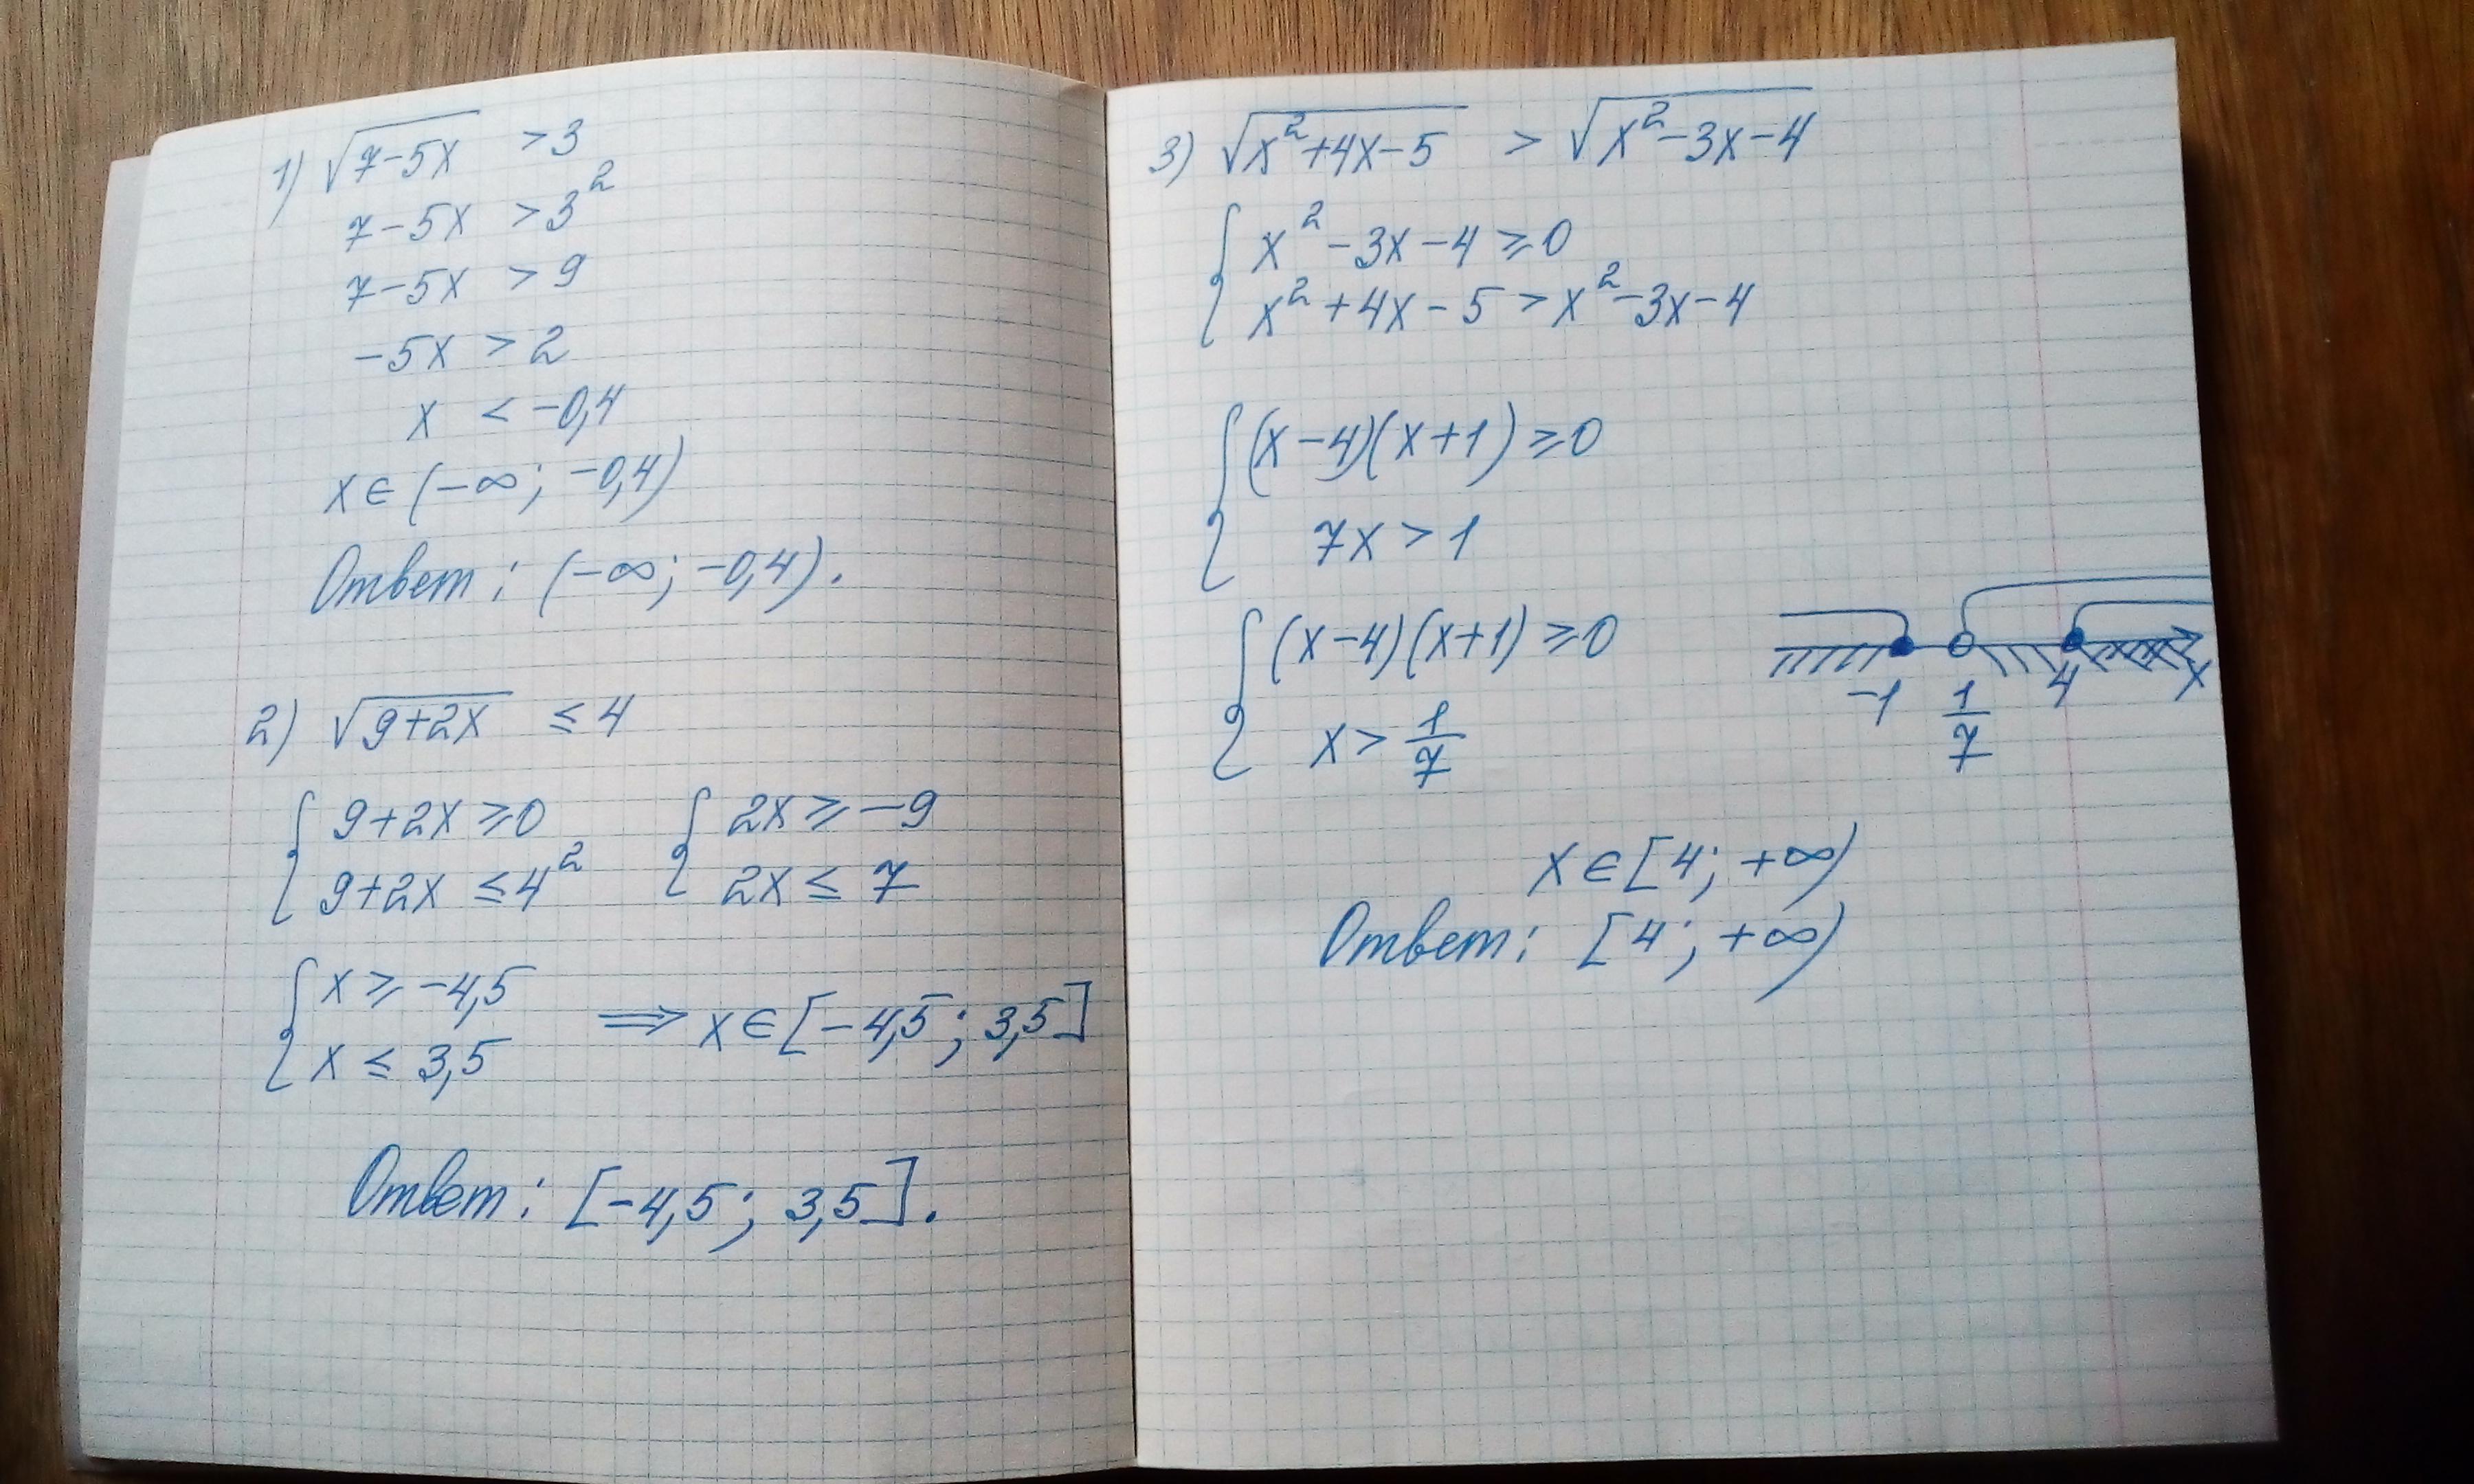 1) √(7-5x) > 3
7-5x > 3²
7-5x > 9
-5x > 2
x < -0,4
x ∈ (-∞; -0,4)
Ответ: (-∞; -0,4).
2) √(9+2x) ≤ 4
{ 9+2x ≥ 0 { 2x ≥ -9
9+2x ≤ 4² 2x ≤ 7
{ x ≥ -4,5
x ≤ 3,5 ⟹ x ∈ [-4,5; 3,5]
Ответ: [-4,5; 3,5].
3) √(x²+4x-5) > √(x²-3x-4)
{ x²-3x-4 ≥ 0
x²+4x-5 > x²-3x-4
{ (x-4)(x+1) ≥ 0
7x > 1
{ (x-4)(x+1) ≥ 0
x > 1/7
-1 1/7 4 x
x ∈ [4; +∞)
Ответ: [4; +∞)